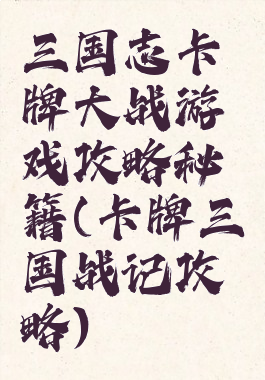 三国志卡
牌大战游
戏攻略秘
籍(卡牌三
国战记攻
略)